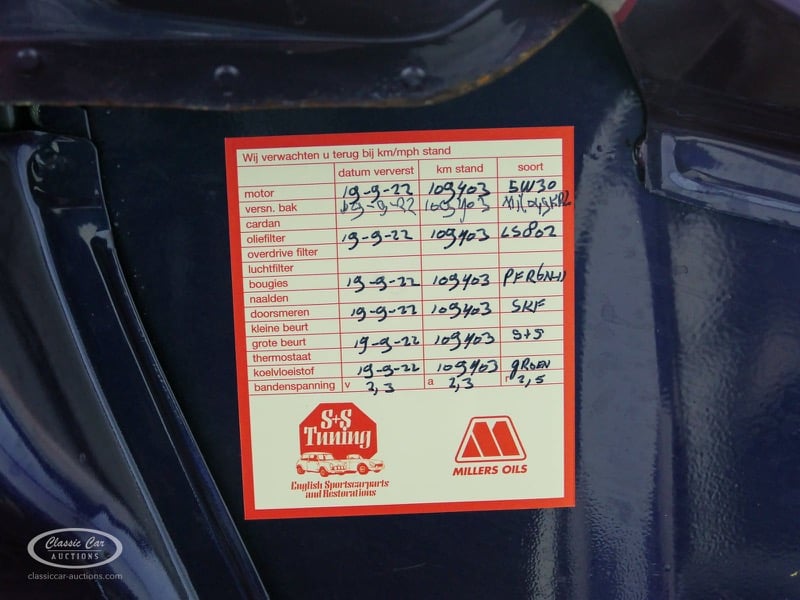 Wij verwachten u terug bij km/mph stand
datum ververst km stand soort
motor 19-9-22 109403 5W30
versn. bak 19-9-22 109403
cardan
oliefilter 19-9-22 109403 LS802
overdrive filter
luchtfilter
bougies 19-9-22 109403 PFR6N-11
naalden
doorsmeren 19-9-22 109403 SKF
kleine beurt
grote beurt 19-9-22 109403 S+S
thermostaat
koelvloeistof 19-9-22 109403 groen
bandenspanning v 2,3 a 2,3 r 2,5
S+S
Tuning
English Sportscarparts
and Restorations
MILLERS OILS
Classic Car
AUCTIONS
classiccar-auctions.com